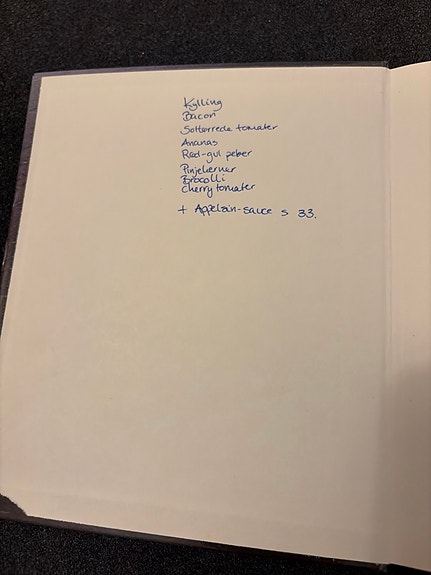 Kylling
Bacon
Soltørrede tomater
Ananas
Rød-gul peber
Pinjekerner
Brocolli
Cherrytomater
+ Appelsin-sauce s 33.